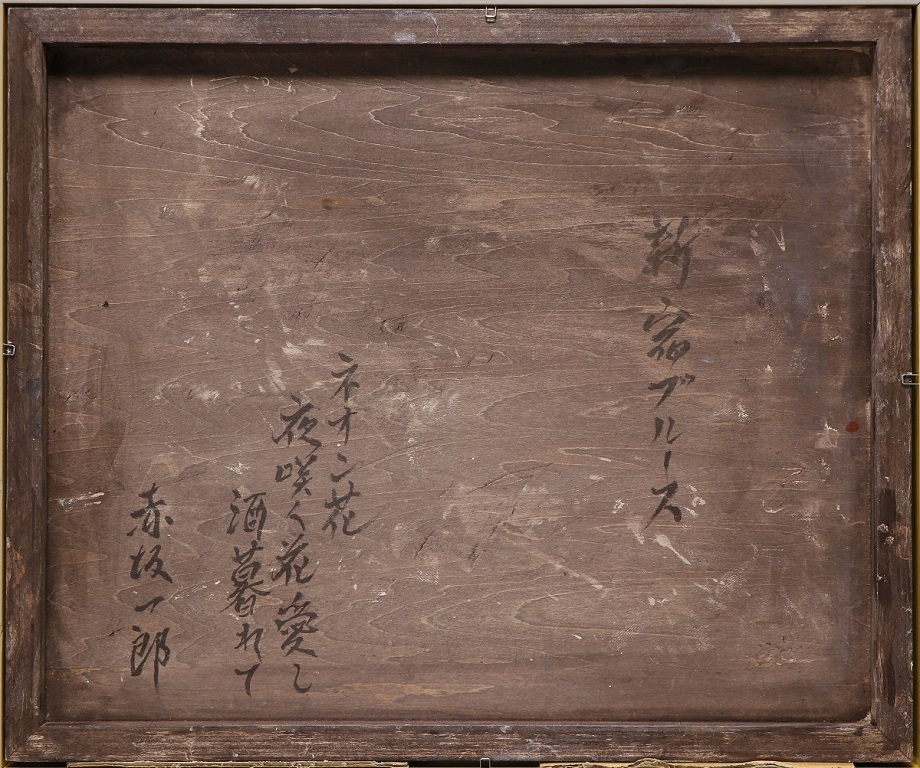 新宿ブルース
ネオン花
夜咲く花愛し
酒暮れて
赤坂一郎